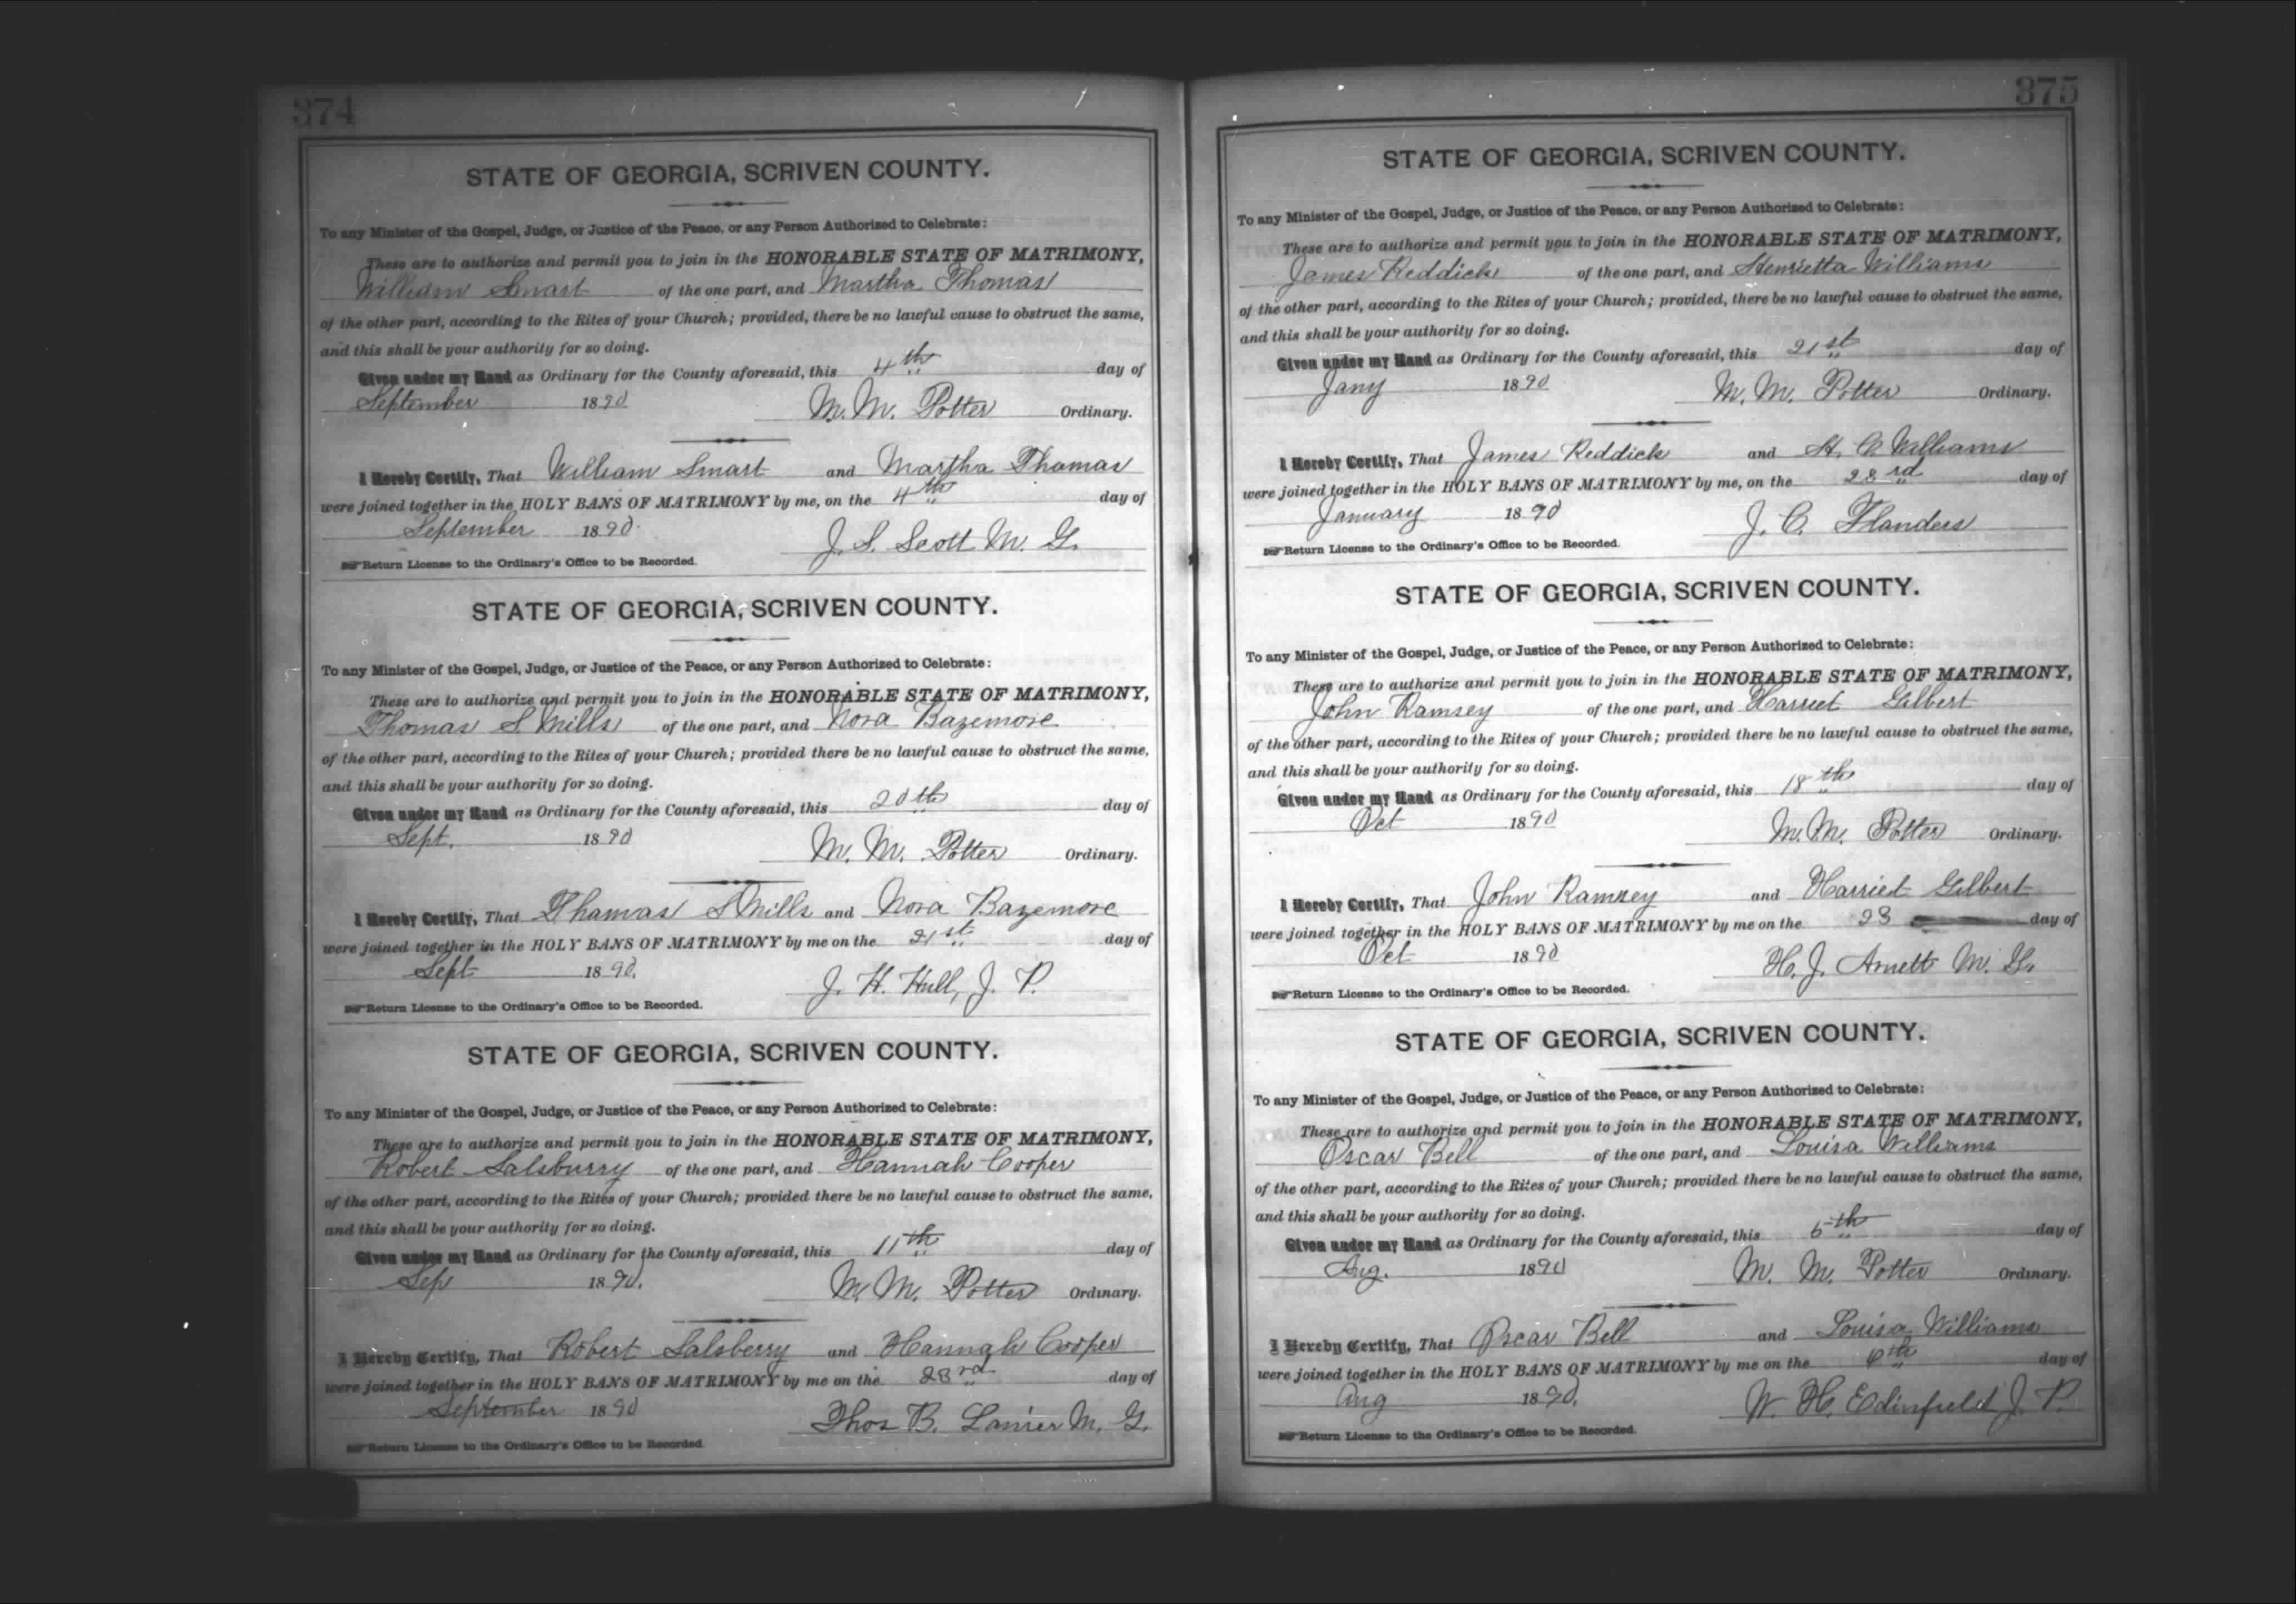 374
STATE OF GEORGIA, SCRIVEN COUNTY.
To any Minister of the Gospel, Judge, or Justice of the Peace, or any Person Authorized to Celebrate:
These are to authorize and permit you to join in the HONORABLE STATE OF MATRIMONY,
William Smart of the one part, and Martha Thomas
of the other part, according to the Rites of your Church; provided, there be no lawful cause to obstruct the same,
and this shall be your authority for so doing.
Given under my Hand as Ordinary for the County aforesaid, this 4th day of
September 1890 M. M. Potter Ordinary.
I Hereby Certify, That William Smart and Martha Thomas
were joined together in the HOLY BANS OF MATRIMONY by me, on the 4th day of
September 1890 J. S. Scott M. G.
Return License to the Ordinary's Office to be Recorded.
STATE OF GEORGIA, SCRIVEN COUNTY.
To any Minister of the Gospel, Judge, or Justice of the Peace, or any Person Authorized to Celebrate:
These are to authorize and permit you to join in the HONORABLE STATE OF MATRIMONY,
Thomas S. Mills of the one part, and Nora Bazemore
of the other part, according to the Rites of your Church; provided there be no lawful cause to obstruct the same,
and this shall be your authority for so doing.
Given under my Hand as Ordinary for the County aforesaid, this 20th day of
Sept. 1890 M. M. Potter Ordinary.
I Hereby Certify, That Thomas S Mills and Nora Bazemore
were joined together in the HOLY BANS OF MATRIMONY by me on the 21st day of
Sept 1890. J. H. Hull, J. P.
Return License to the Ordinary's Office to be Recorded.
STATE OF GEORGIA, SCRIVEN COUNTY.
To any Minister of the Gospel, Judge, or Justice of the Peace, or any Person Authorized to Celebrate:
These are to authorize and permit you to join in the HONORABLE STATE OF MATRIMONY,
Robert Salsburry of the one part, and Hannah Cooper
of the other part, according to the Rites of your Church; provided there be no lawful cause to obstruct the same,
and this shall be your authority for so doing.
Given under my Hand as Ordinary for the County aforesaid, this 11th day of
Sep 1890. M. M. Potter Ordinary.
I Hereby Certify, That Robert Salsberry and Hannah Cooper
were joined together in the HOLY BANS OF MATRIMONY by me on the 23rd day of
September 1890 Thos B. Lanier M. G.
Return License to the Ordinary's Office to be Recorded
375
STATE OF GEORGIA, SCRIVEN COUNTY.
To any Minister of the Gospel, Judge, or Justice of the Peace, or any Person Authorized to Celebrate:
These are to authorize and permit you to join in the HONORABLE STATE OF MATRIMONY,
James Reddick of the one part, and Henrietta Williams
of the other part, according to the Rites of your Church; provided, there be no lawful cause to obstruct the same,
and this shall be your authority for so doing.
Given under my Hand as Ordinary for the County aforesaid, this 21st day of
Jany 1890 M. M. Potter Ordinary.
I Hereby Certify, That James Reddick and H. C. Williams
were joined together in the HOLY BANS OF MATRIMONY by me, on the 23rd day of
January 1890 J. C. Flanders
Return License to the Ordinary's Office to be Recorded.
STATE OF GEORGIA, SCRIVEN COUNTY.
To any Minister of the Gospel, Judge, or Justice of the Peace, or any Person Authorized to Celebrate:
These are to authorize and permit you to join in the HONORABLE STATE OF MATRIMONY,
John Ramsey of the one part, and Harriet Gilbert
of the other part, according to the Rites of your Church; provided there be no lawful cause to obstruct the same,
and this shall be your authority for so doing.
Given under my Hand as Ordinary for the County aforesaid, this 18th day of
Oct 1890 M. M. Potter Ordinary.
I Hereby Certify, That John Ramsey and Harriet Gilbert
were joined together in the HOLY BANS OF MATRIMONY by me on the 23 day of
Oct 1890 H. J. Arnett M. G.
Return License to the Ordinary's Office to be Recorded.
STATE OF GEORGIA, SCRIVEN COUNTY.
To any Minister of the Gospel, Judge, or Justice of the Peace, or any Person Authorized to Celebrate:
These are to authorize and permit you to join in the HONORABLE STATE OF MATRIMONY,
Oscar Bell of the one part, and Louisa Williams
of the other part, according to the Rites of your Church; provided there be no lawful cause to obstruct the same,
and this shall be your authority for so doing.
Given under my Hand as Ordinary for the County aforesaid, this 6th day of
Aug. 1890 M. M. Potter Ordinary.
I Hereby Certify, That Oscar Bell and Louisa Williams
were joined together in the HOLY BANS OF MATRIMONY by me on the 6th day of
Aug 1890. W. H. Edinfield J. P.
Return License to the Ordinary's Office to be Recorded.